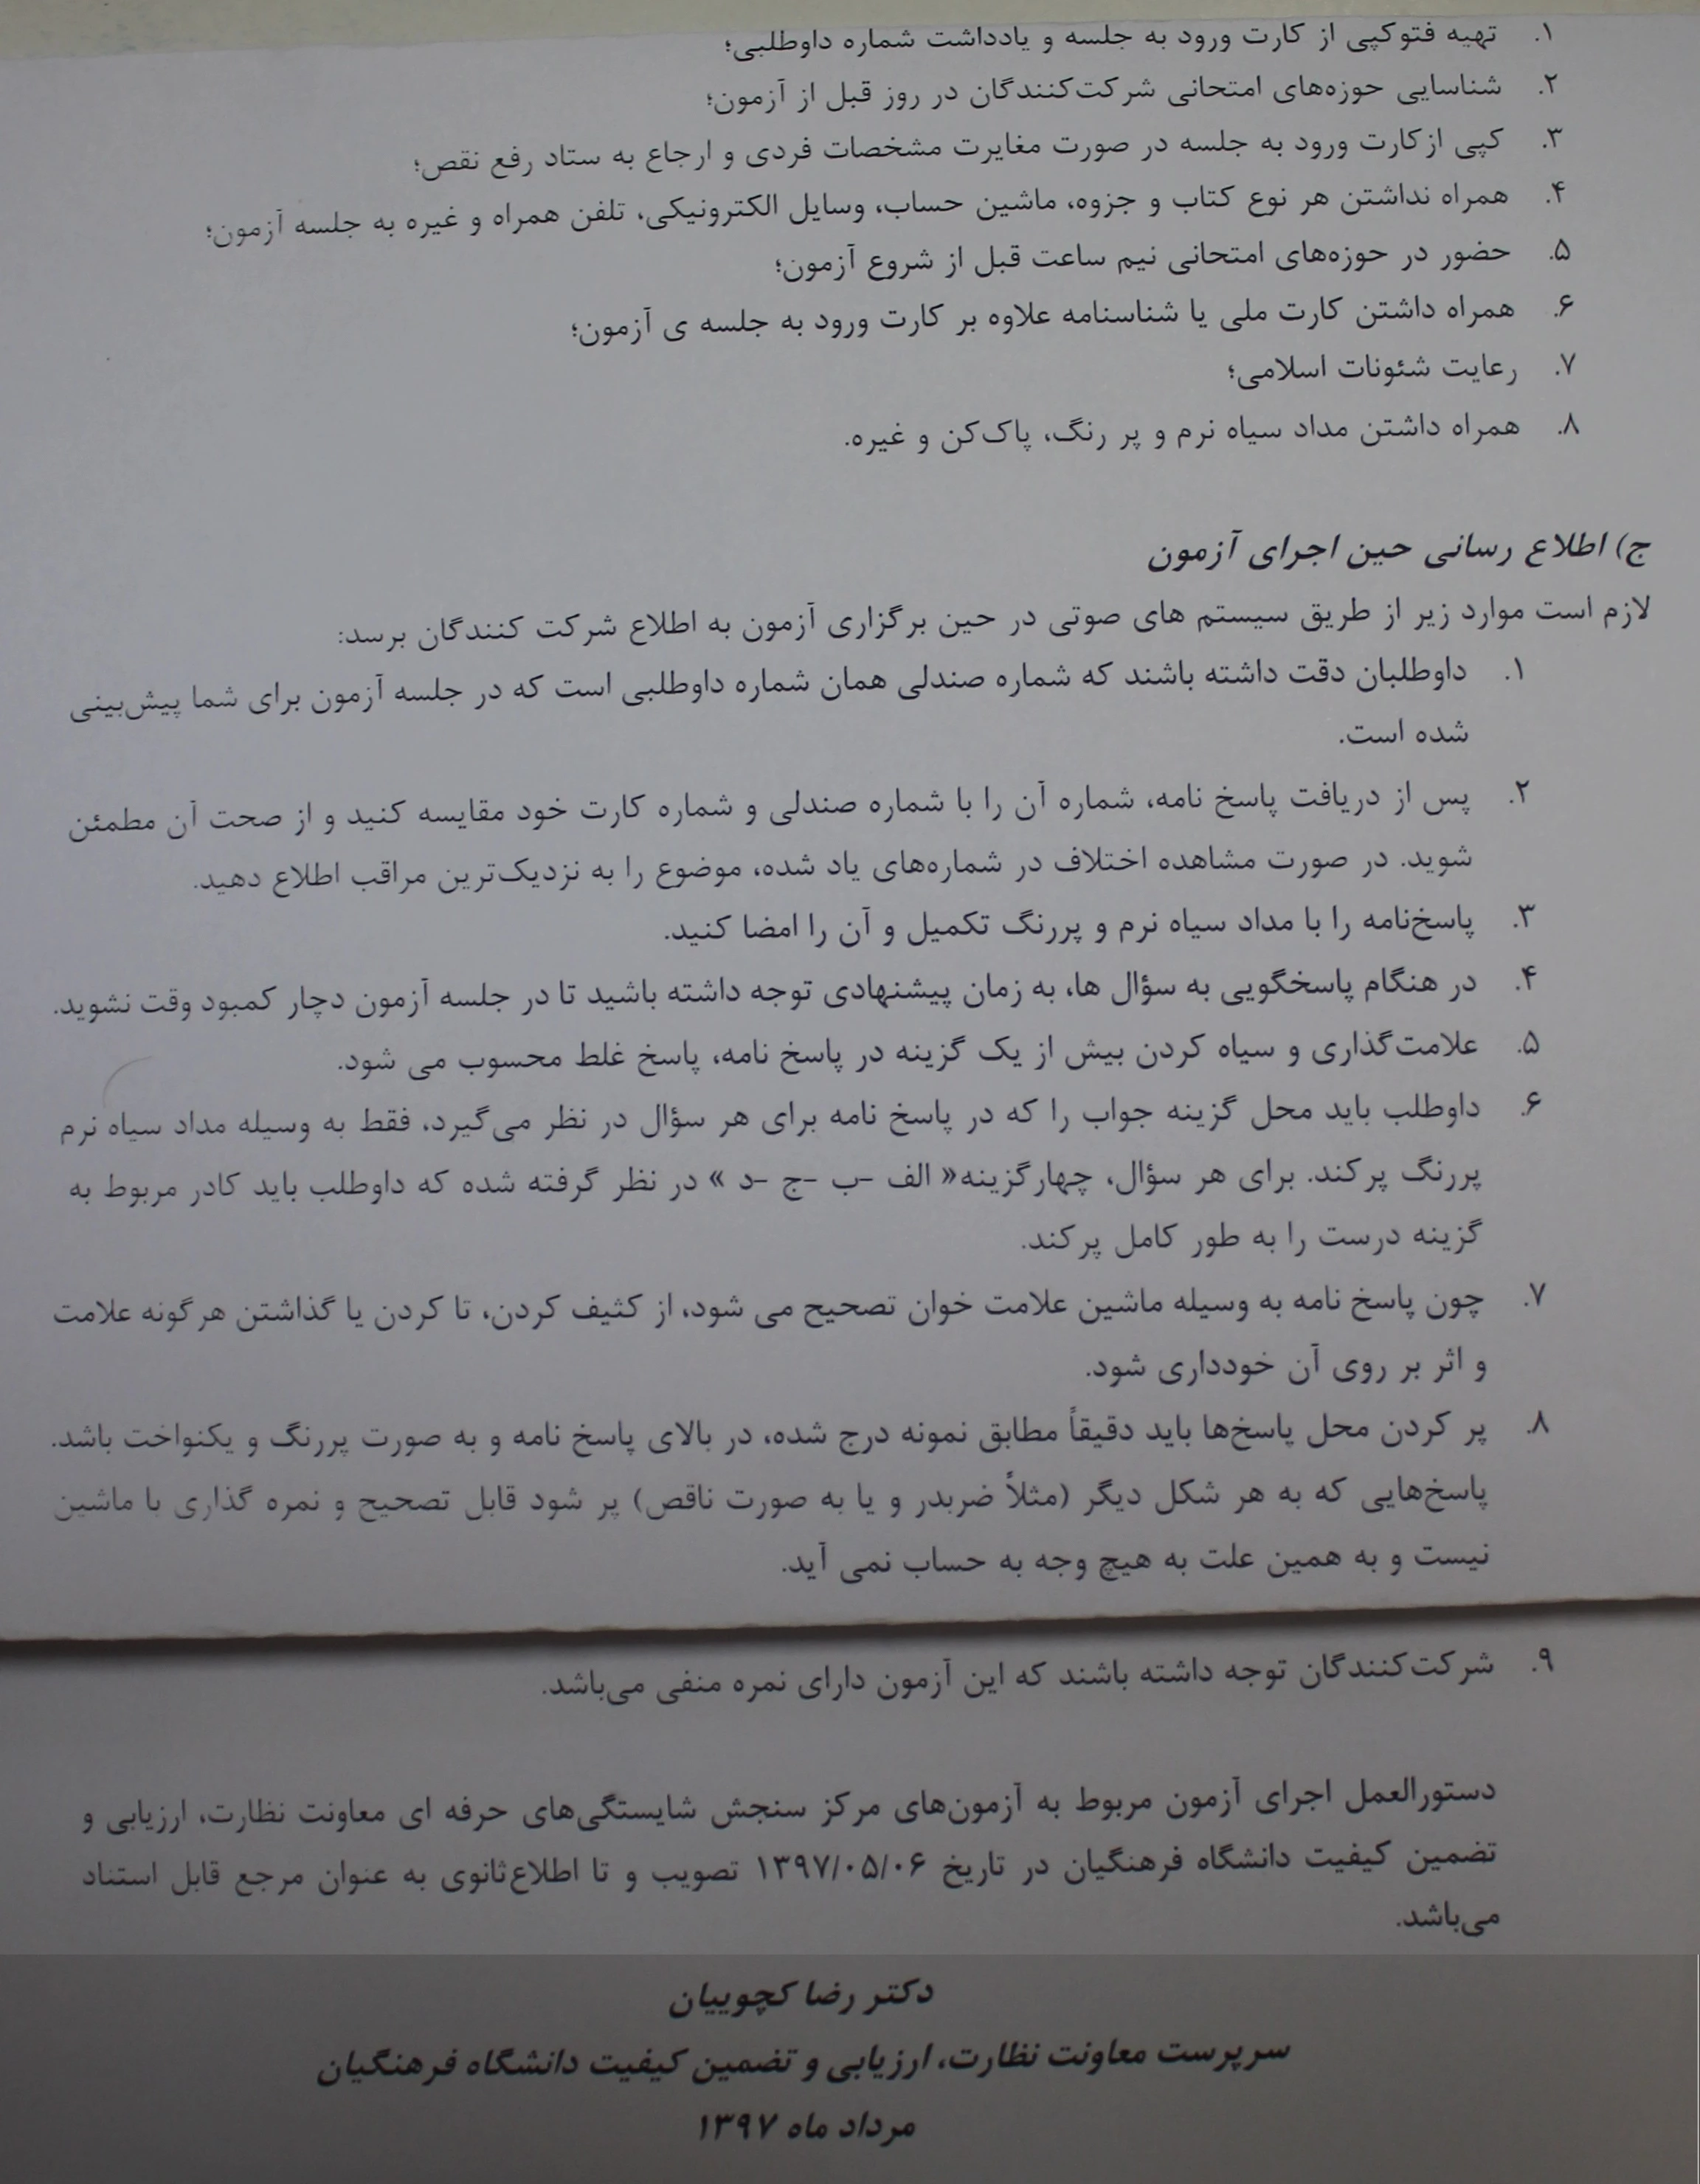 ۱. تهیه فتوکپی از کارت ورود به جلسه و یادداشت شماره داوطلبی؛
۲. شناسایی حوزه‌های امتحانی شرکت‌کنندگان در روز قبل از آزمون؛
۳. کپی ازکارت ورود به جلسه در صورت مغایرت مشخصات فردی و ارجاع به ستاد رفع نقص؛
۴. همراه نداشتن هر نوع کتاب و جزوه، ماشین حساب، وسایل الکترونیکی، تلفن همراه و غیره به جلسه آزمون؛
۵. حضور در حوزه‌های امتحانی نیم ساعت قبل از شروع آزمون؛
۶. همراه داشتن کارت ملی یا شناسنامه علاوه بر کارت ورود به جلسه ی آزمون؛
۷. رعایت شئونات اسلامی؛
۸. همراه داشتن مداد سیاه نرم و پر رنگ، پاک‌کن و غیره.
ج) اطلاع رسانی حین اجرای آزمون
لازم است موارد زیر از طریق سیستم های صوتی در حین برگزاری آزمون به اطلاع شرکت کنندگان برسد:
۱. داوطلبان دقت داشته باشند که شماره صندلی همان شماره داوطلبی است که در جلسه آزمون برای شما پیش‌بینی
شده است.
۲. پس از دریافت پاسخ نامه، شماره آن را با شماره صندلی و شماره کارت خود مقایسه کنید و از صحت آن مطمئن
شوید. در صورت مشاهده اختلاف در شماره‌های یاد شده، موضوع را به نزدیک‌ترین مراقب اطلاع دهید.
۳. پاسخ‌نامه را با مداد سیاه نرم و پررنگ تکمیل و آن را امضا کنید.
۴. در هنگام پاسخگویی به سؤال ها، به زمان پیشنهادی توجه داشته باشید تا در جلسه آزمون دچار کمبود وقت نشوید.
۵. علامت‌گذاری و سیاه کردن بیش از یک گزینه در پاسخ نامه، پاسخ غلط محسوب می شود.
۶. داوطلب باید محل گزینه جواب را که در پاسخ نامه برای هر سؤال در نظر می‌گیرد، فقط به وسیله مداد سیاه نرم
پررنگ پرکند. برای هر سؤال، چهارگزینه« الف -ب -ج -د » در نظر گرفته شده که داوطلب باید کادر مربوط به
گزینه درست را به طور کامل پرکند.
۷. چون پاسخ نامه به وسیله ماشین علامت خوان تصحیح می شود، از کثیف کردن، تا کردن یا گذاشتن هرگونه علامت
و اثر بر روی آن خودداری شود.
۸. پر کردن محل پاسخ‌ها باید دقیقاً مطابق نمونه درج شده، در بالای پاسخ نامه و به صورت پررنگ و یکنواخت باشد.
پاسخ‌هایی که به هر شکل دیگر (مثلاً ضربدر و یا به صورت ناقص) پر شود قابل تصحیح و نمره گذاری با ماشین
نیست و به همین علت به هیچ وجه به حساب نمی آید.
۹. شرکت‌کنندگان توجه داشته باشند که این آزمون دارای نمره منفی می‌باشد.
دستورالعمل اجرای آزمون مربوط به آزمون‌های مرکز سنجش شایستگی‌های حرفه ای معاونت نظارت، ارزیابی و
تضمین کیفیت دانشگاه فرهنگیان در تاریخ ۱۳۹۷/۰۵/۰۶ تصویب و تا اطلاع‌ثانوی به عنوان مرجع قابل استناد
می‌باشد.
دکتر رضا کچوییان
سرپرست معاونت نظارت، ارزیابی و تضمین کیفیت دانشگاه فرهنگیان
مرداد ماه ۱۳۹۷